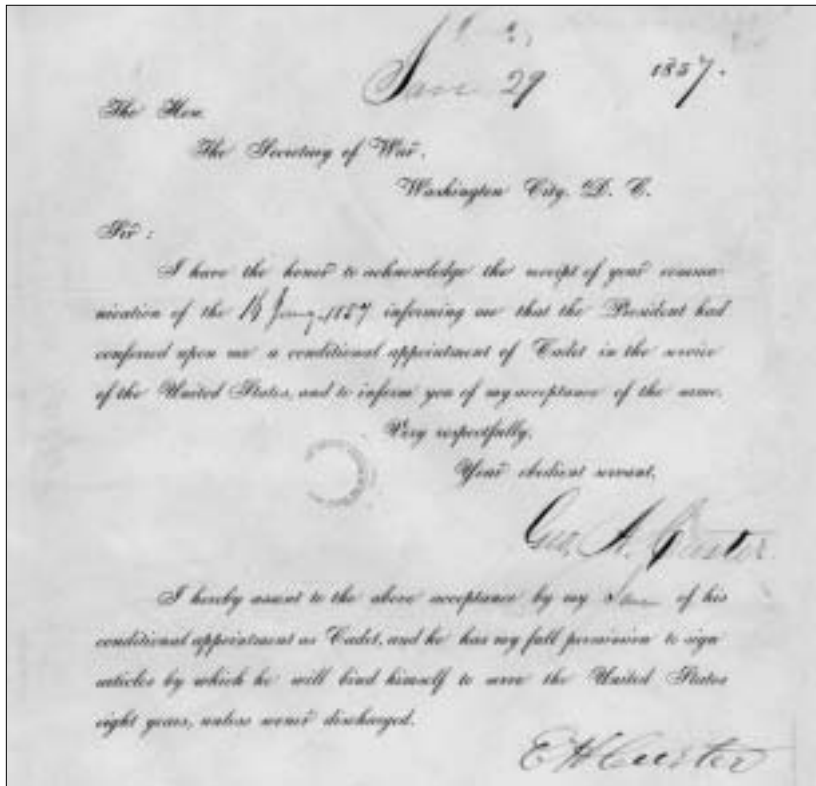 Jan 29 1857.
The Hon.
The Secretary of War,
Washington City, D. C.
Sir :
I have the honor to acknowledge the receipt of your commu-
nication of the Jany. 1857 informing me that the President had
conferred upon me a conditional appointment of Cadet in the service
of the United States, and to inform you of my acceptance of the same.
Very respectfully,
Your obedient servant,
Geo. A. Custer
I hereby assent to the above acceptance by my Son of his
conditional appointment as Cadet, and he has my full permission to sign
articles by which he will bind himself to serve the United States
eight years, unless sooner discharged.
E H Custer